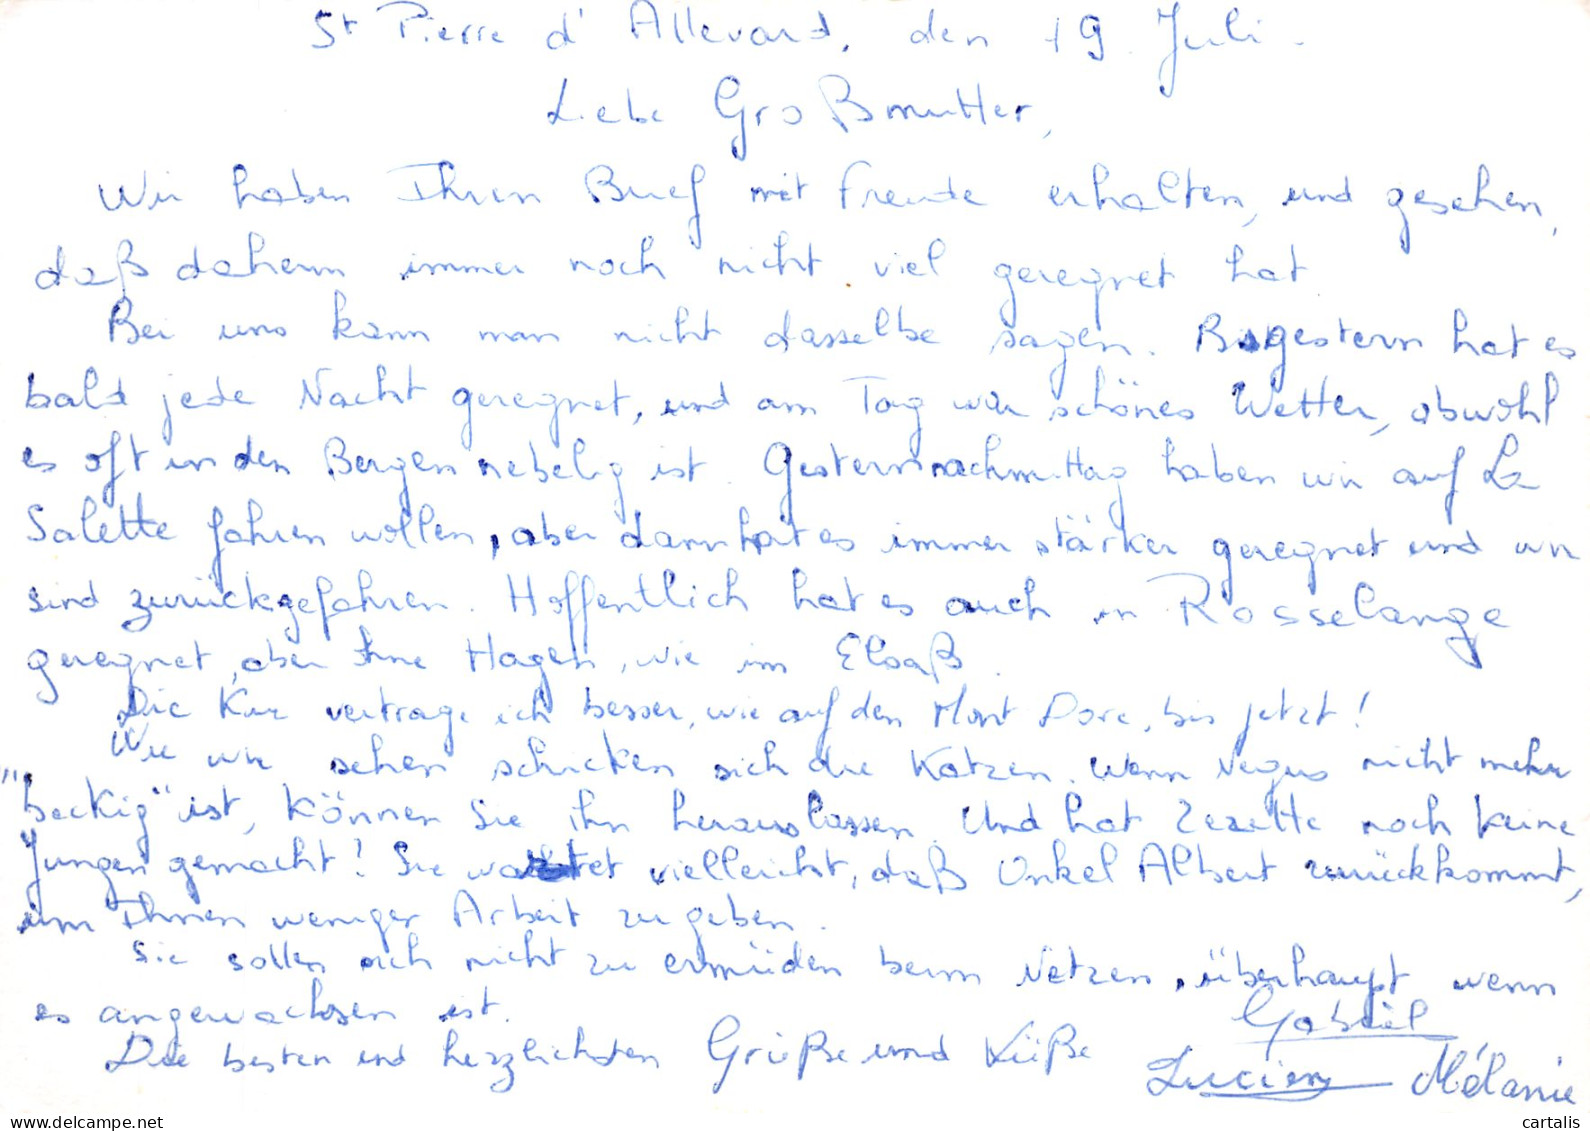 St Pierre d'Allevard, den 19. Juli.
Liebe Großmutter,
Wir haben Ihren Brief mit Freude erhalten, und gesehen,
daß daheim immer noch nicht viel geregnet hat.
Bei uns kann man nicht dasselbe sagen. Bisgestern hat es
bald jede Nacht geregnet, und am Tag war schönes Wetter, obwohl
es oft in den Bergen nebelig ist. Gesternnachmittag haben wir auf La
Salette fahren wollen, aber dann hat es immer stärker geregnet und wir
sind zurückgefahren. Hoffentlich hat es auch in Rosselange
geregnet, aber ohne Hagen, wie im Elsaß.
Die Kur vertrage ich besser, wie auf den Mont Dore, bis jetzt!
Wie wir sehen schicken sich die Katzen. Wenn Negus nicht mehr
"bockig" ist, können Sie ihn herauslassen. Und hat Zezette noch keine
Jungen gemacht! Sie wartet vielleicht, daß Onkel Albert zurückkommt,
um Ihnen weniger Arbeit zu geben.
Sie sollen sich nicht zu ermüden beim Netzen, überhaupt wenn
es angewachsen ist.
Die besten und herzlichsten Grüße und Küße
Gabriel
Lucien Mélanie
delcampe.net
cartalis